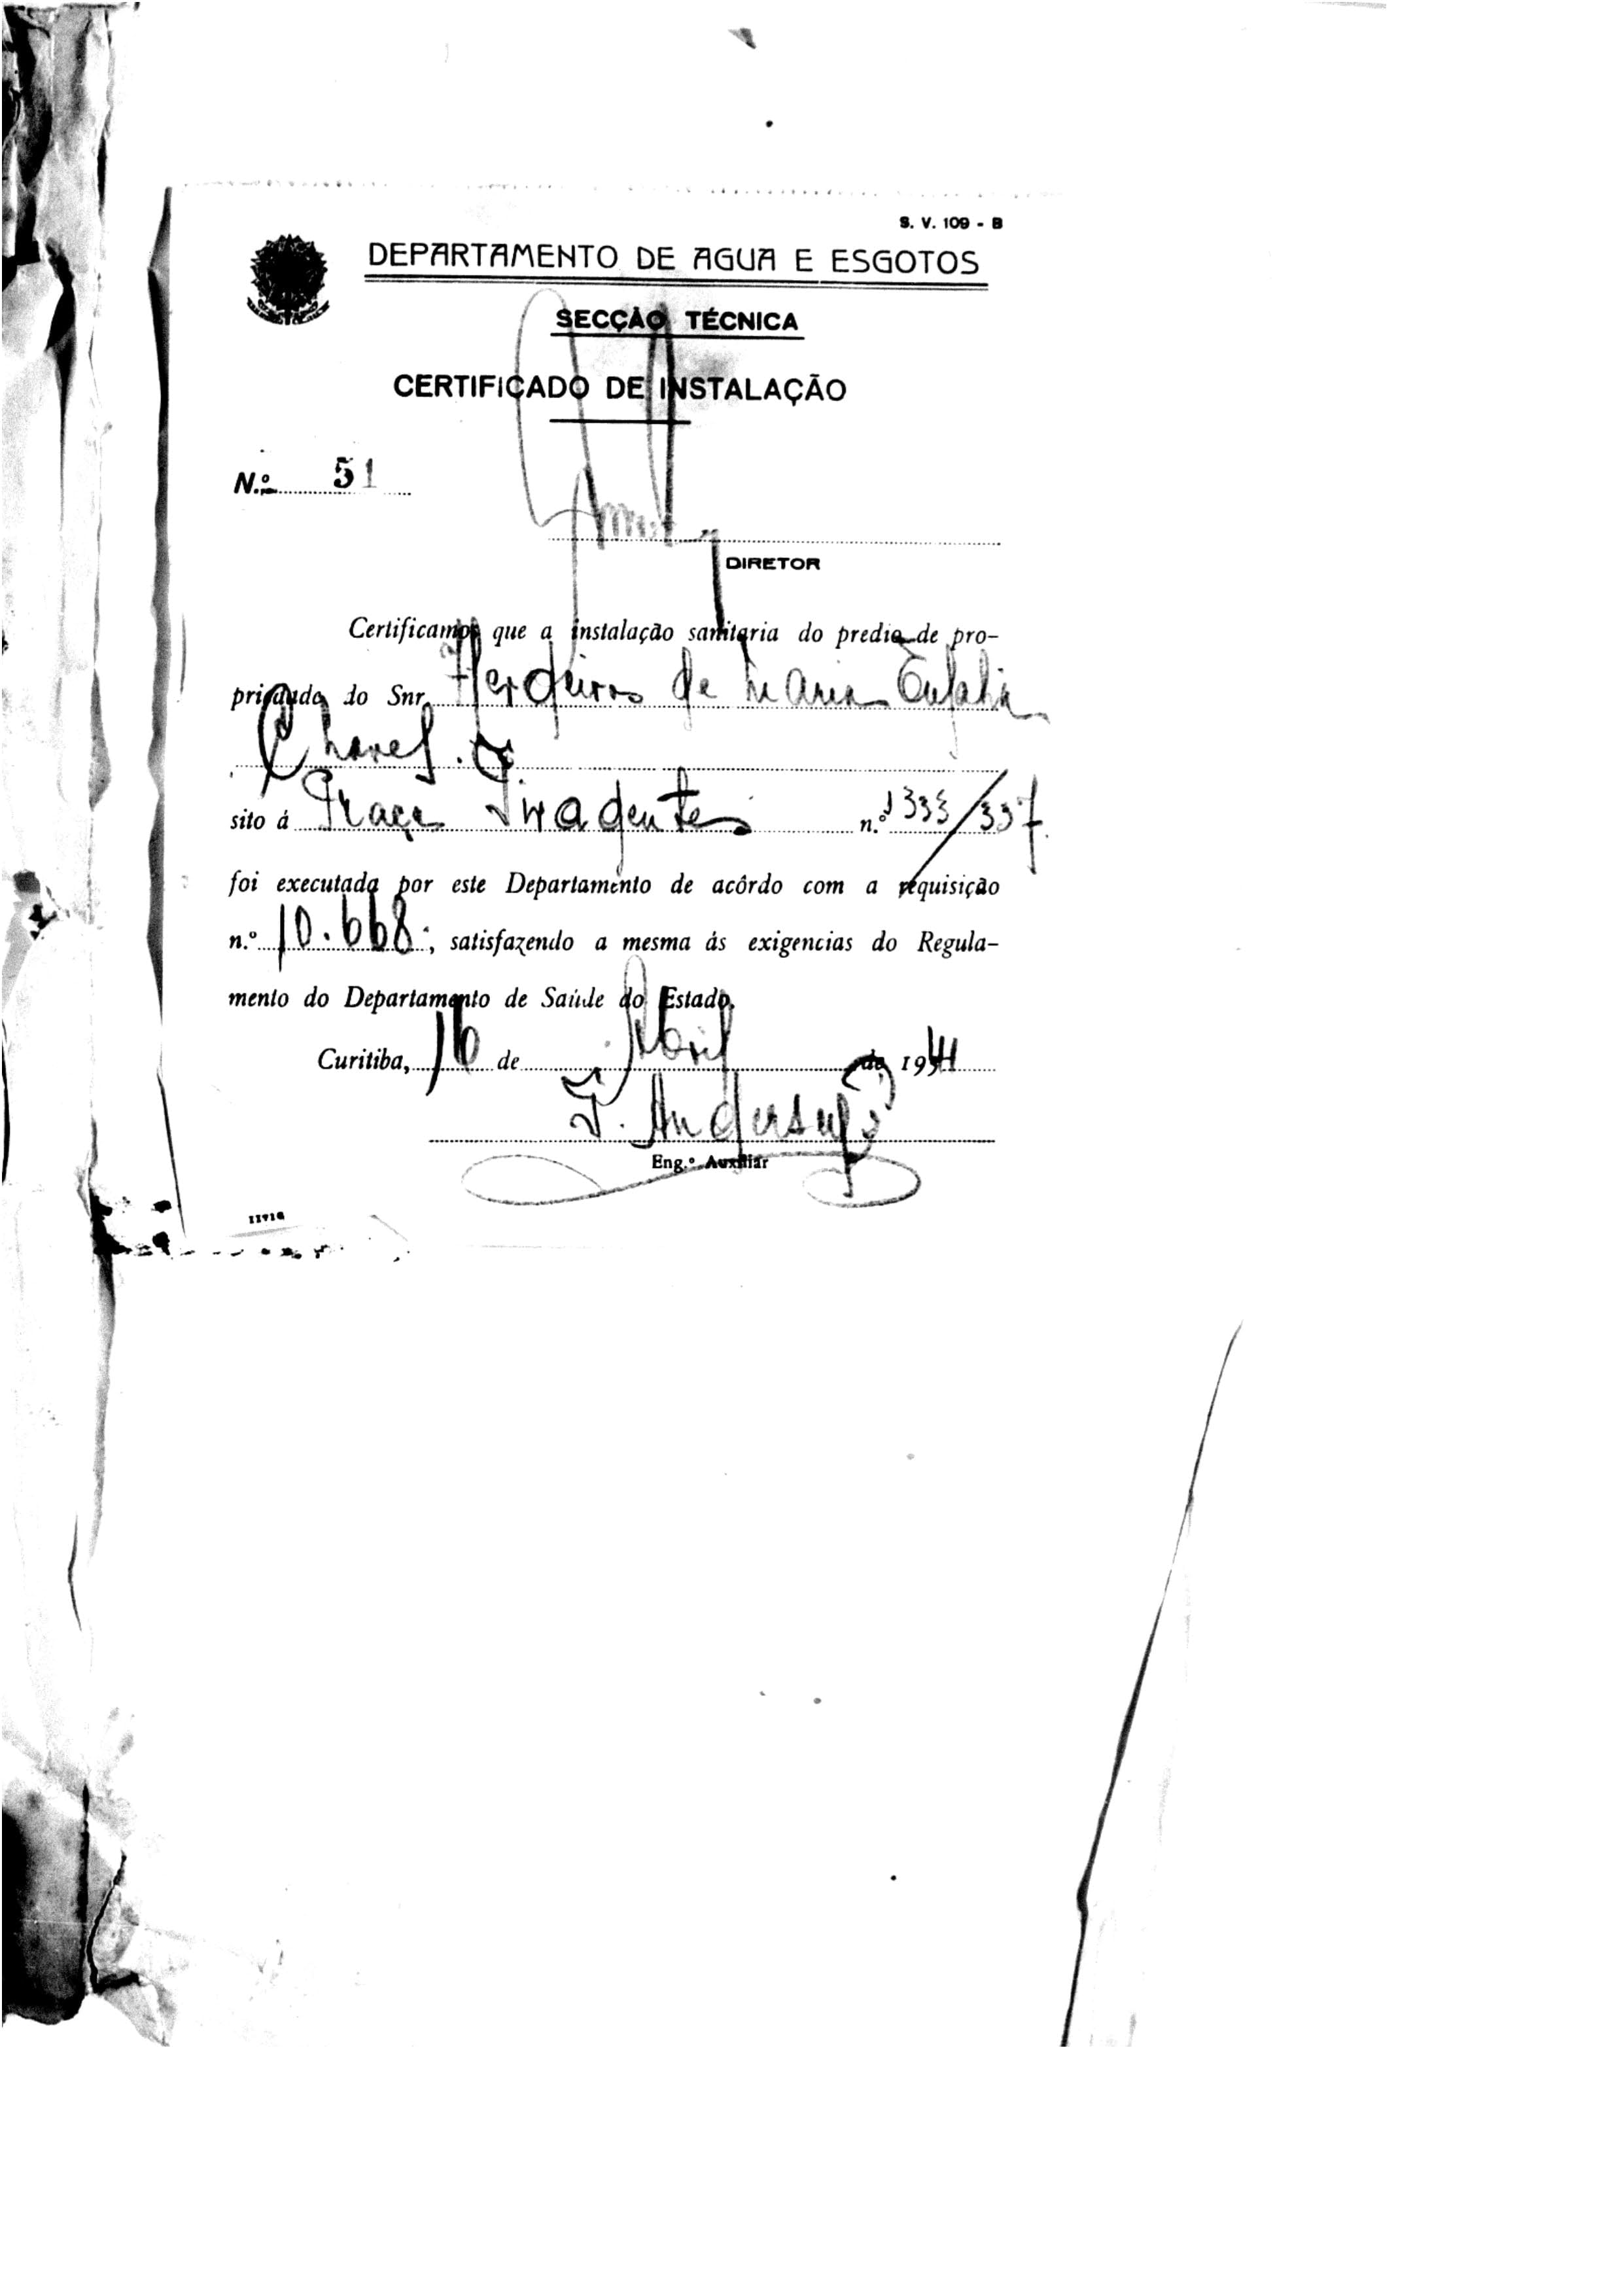 S. V. 109 - B
DEPARTAMENTO DE AGUA E ESGOTOS
SECÇÃO TÉCNICA
CERTIFICADO DE INSTALAÇÃO
N.º 51
DIRETOR
Certificamos que a instalação sanitaria do predio de pro-
priedade do Snr. Herdeiros de Maria Eufalia
Chaves.
sito á Praça Tiradentes n.º 333/337
foi executada por este Departamento de acôrdo com a requisição
n.º 10.668; satisfazendo a mesma ás exigencias do Regula-
mento do Departamento de Saúde do Estado.
Curitiba, 16 de Abril de 1941
T. Andersen
Eng.º Auxiliar